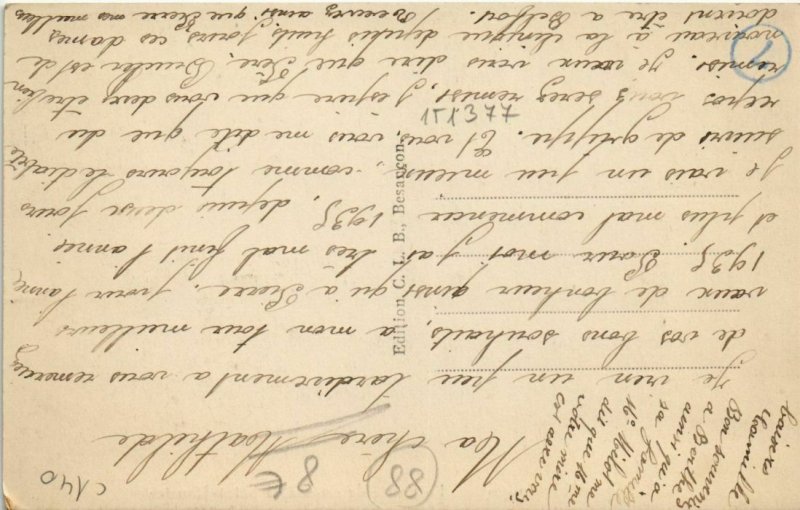 Ma chère Mathilde
Je vien un peu tardivement a vous remercier
de vos bons souhaits, a mon tour meilleurs
vœux de bonheur ainsi qu'à Pierre. pour l'année
1935. Pour moi j'ai très mal finit l'année
et plus mal commencer 1935, depuis deuse jours
Je vais un peu mieux, comme toujours le diable
suivi de grippe. Et vous, vous me dite que du
repos vous serez remise, j'espère que vous devez être bien
remise. Je veux vous dire que Bruder est de
nouveau à la clinique depuis huits jours ces dames
doivent être a Belfort. Recevez ainsi que Pierre mes meilleurs
baisers
Camille
Bon souvenir
a Berthe
ainsi qu'a
sa
Me Wilot me
dis que Me
votre mère
est avec vous
Edition C. L. B., Besançon.
151377
1
88
8€
C140